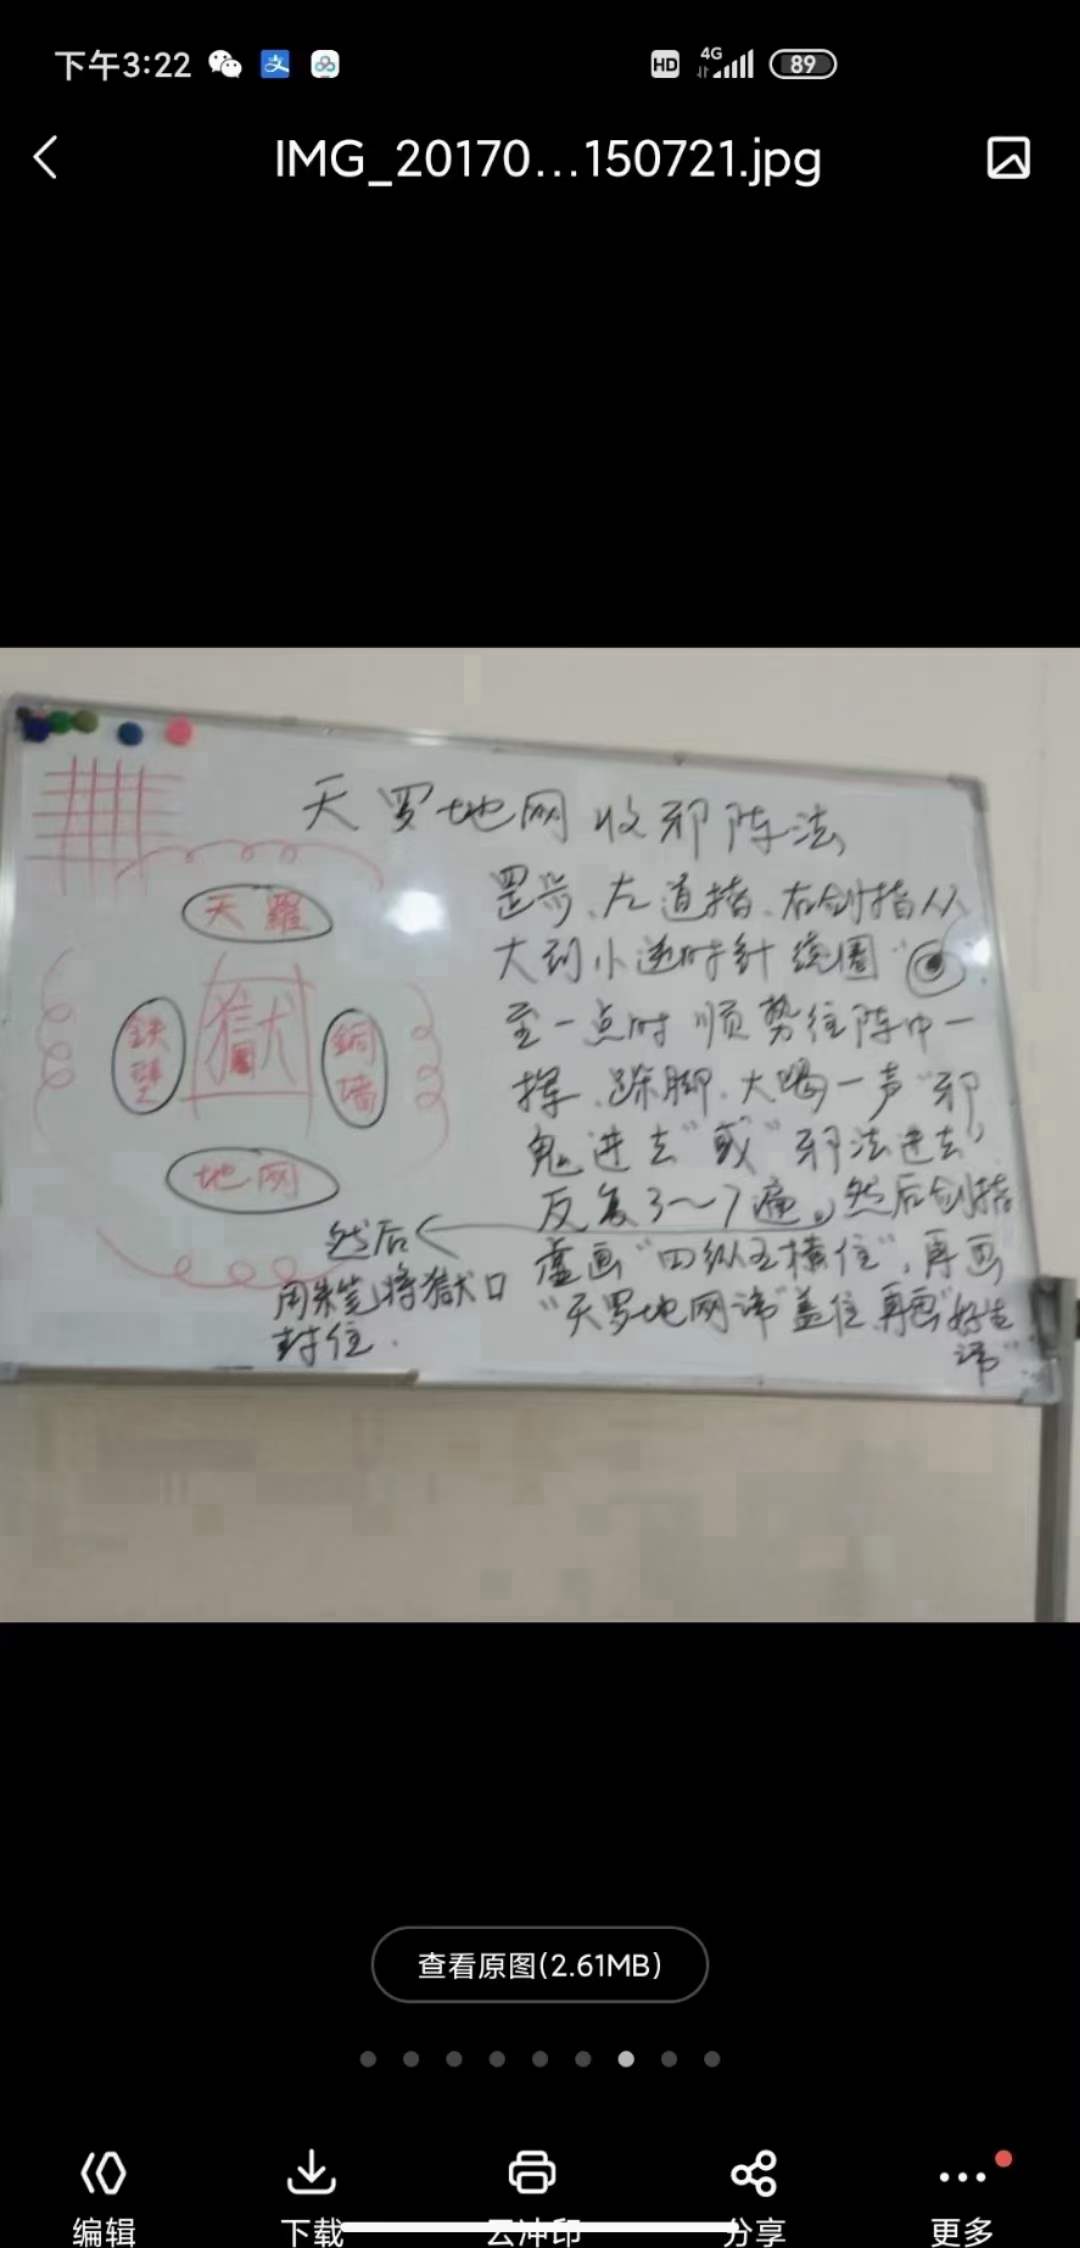 下午3:22
HD 4G 89
IMG_20170...150721.jpg
天罗地网收邪阵法
罡步、左道指、右剑指从
大到小逆时针绕圈"
至一点时顺势往阵中一
挥、跺脚、大喝一声"邪
鬼进去"或"邪法进去"
反复3~7遍。然后剑指
虚画"四纵五横住"，再画
"天罗地网讳"盖住再画"好生
讳"
然后
用朱笔将獄口
封住.
天羅
鉄壁
獄
銅墙
地网
查看原图(2.61MB)
编辑
下载
云冲印
分享
更多